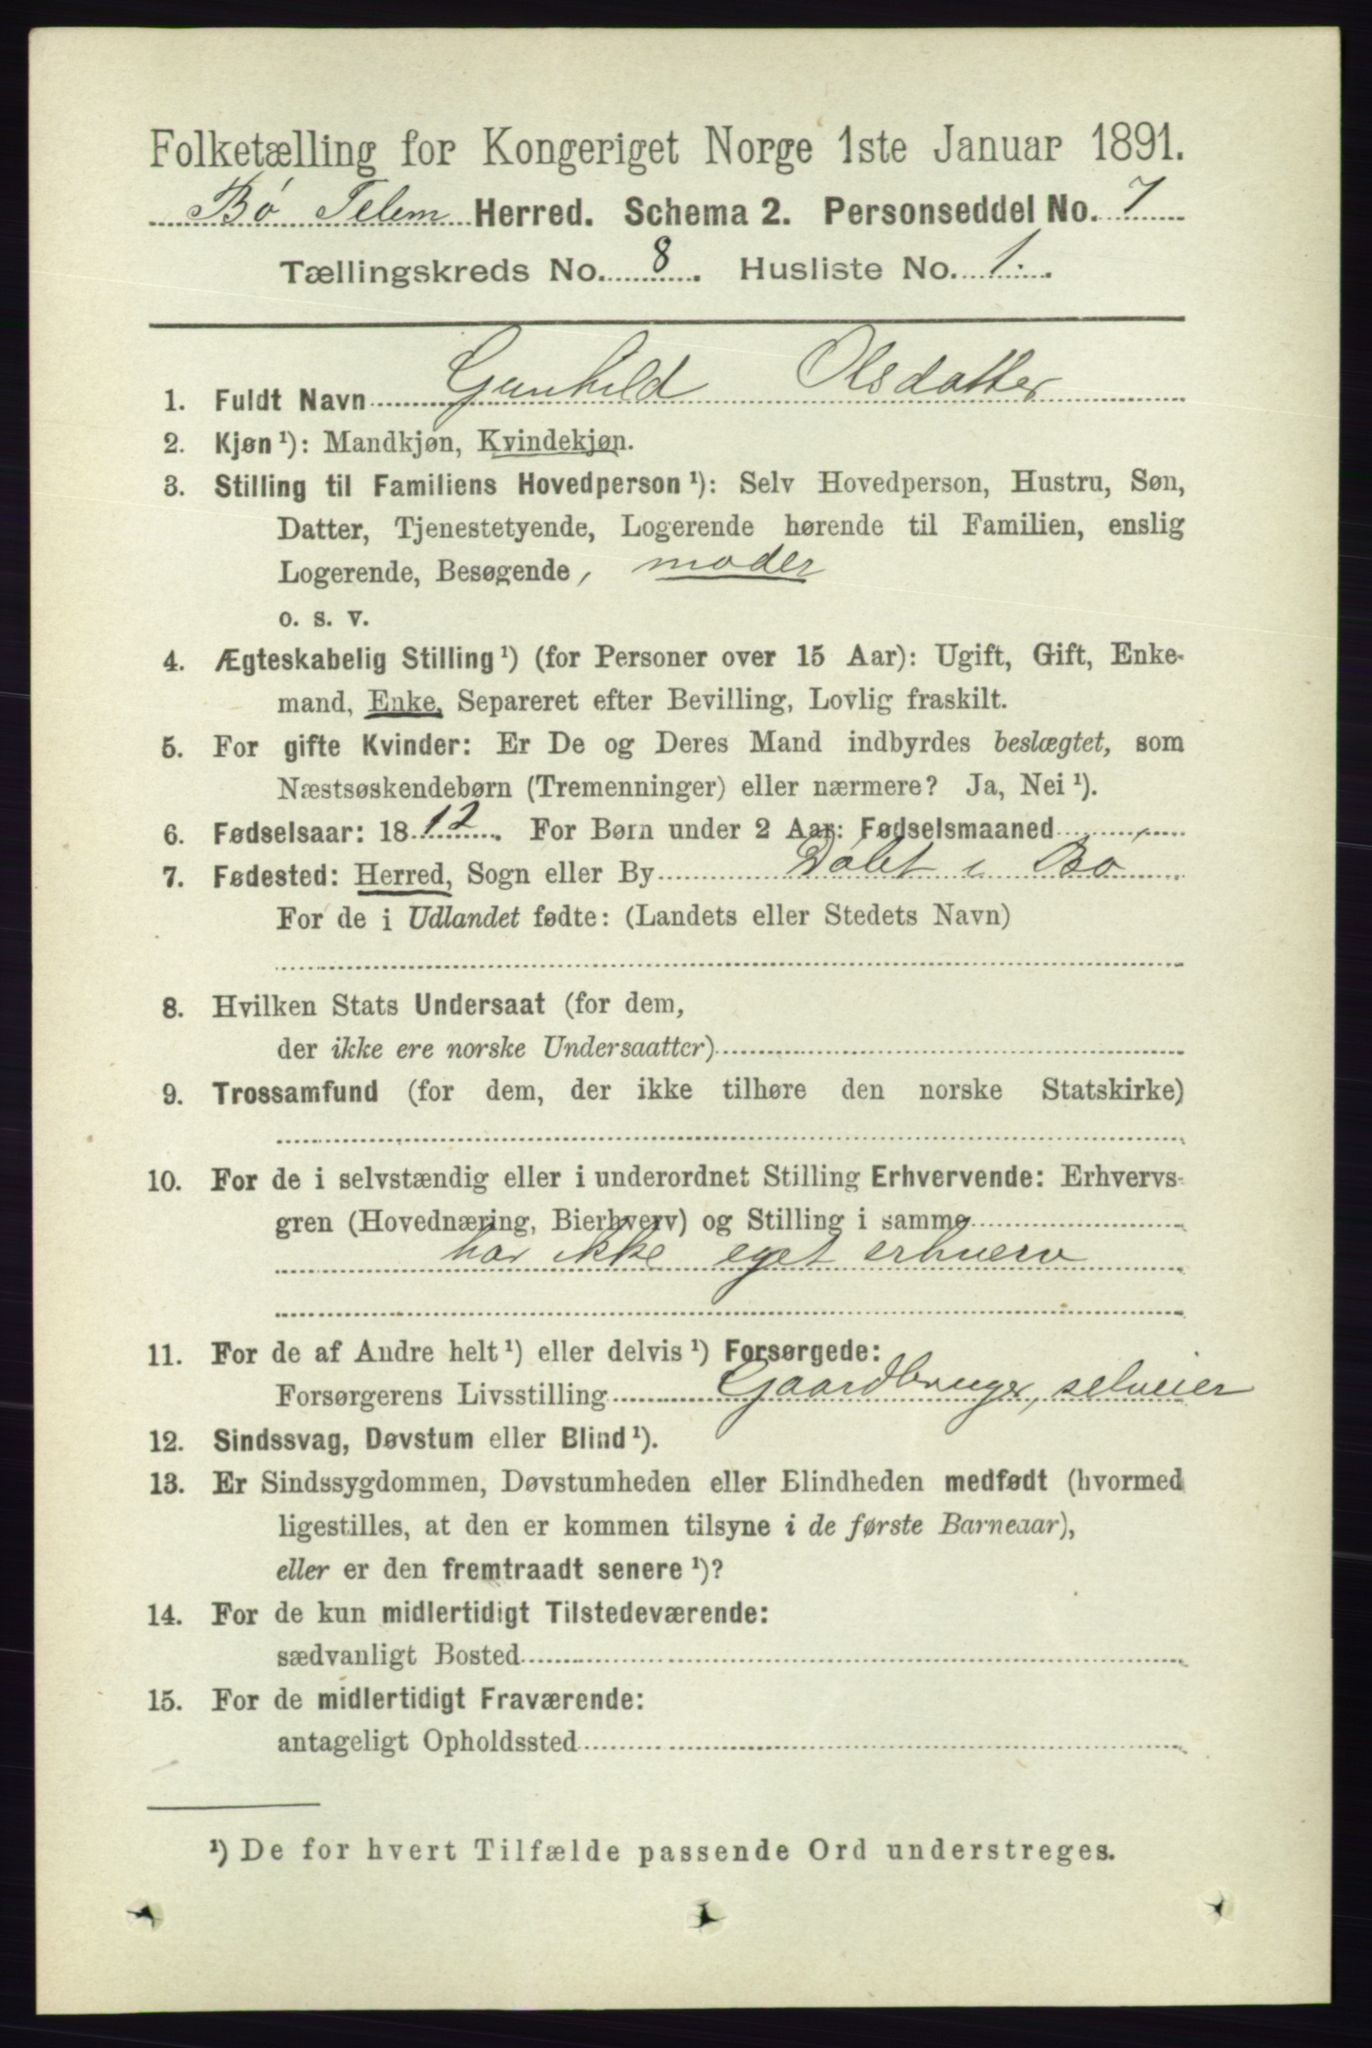 Folketælling for Kongeriget Norge 1ste Januar 1891.
Bø Telem Herred. Schema 2. Personseddel No. 7
Tællingskreds No. 8. Husliste No. 1.
1. Fuldt Navn Gunhild Olsdatter
2. Kjøn¹): Mandkjøn, Kvindekjøn.
3. Stilling til Familiens Hovedperson¹): Selv Hovedperson, Hustru, Søn,
Datter, Tjenestetyende, Logerende hørende til Familien, enslig
Logerende, Besøgende, moder
o. s. v.
4. Ægteskabelig Stilling¹) (for Personer over 15 Aar): Ugift, Gift, Enke-
mand, Enke, Separeret efter Bevilling, Lovlig fraskilt.
5. For gifte Kvinder: Er De og Deres Mand indbyrdes beslægtet, som
Næstsøskendebørn (Tremenninger) eller nærmere? Ja, Nei¹).
6. Fødselsaar: 1812. For Børn under 2 Aar: Fødselsmaaned
7. Fødested: Herred, Sogn eller By Dålet i Bø
For de i Udlandet fødte: (Landets eller Stedets Navn)
8. Hvilken Stats Undersaat (for dem,
der ikke ere norske Undersaatter)
9. Trossamfund (for dem, der ikke tilhøre den norske Statskirke)
10. For de i selvstændig eller i underordnet Stilling Erhvervende: Erhvervs-
gren (Hovednæring, Bierhverv) og Stilling i samme
har ikke eget erhverv
11. For de af Andre helt¹) eller delvis¹) Forsørgede:
Forsørgerens Livsstilling Gaardbruger, selveier
12. Sindssvag, Døvstum eller Blind¹).
13. Er Sindssygdommen, Døvstumheden eller Blindheden medfødt (hvormed
ligestilles, at den er kommen tilsyne i de første Barneaar),
eller er den fremtraadt senere¹)?
14. For de kun midlertidigt Tilstedeværende:
sædvanligt Bosted
15. For de midlertidigt Fraværende:
antageligt Opholdssted
¹) De for hvert Tilfælde passende Ord understreges.